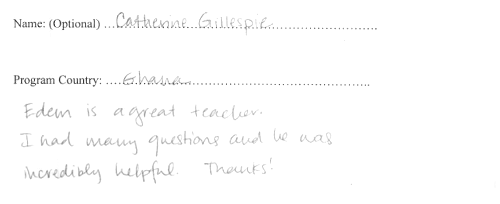 Name: (Optional) ...Catherine Gillespie.................
Program Country: ....Ghana.............................................
Edem is a great teacher.
I had many questions and he was
incredibly helpful. Thanks!